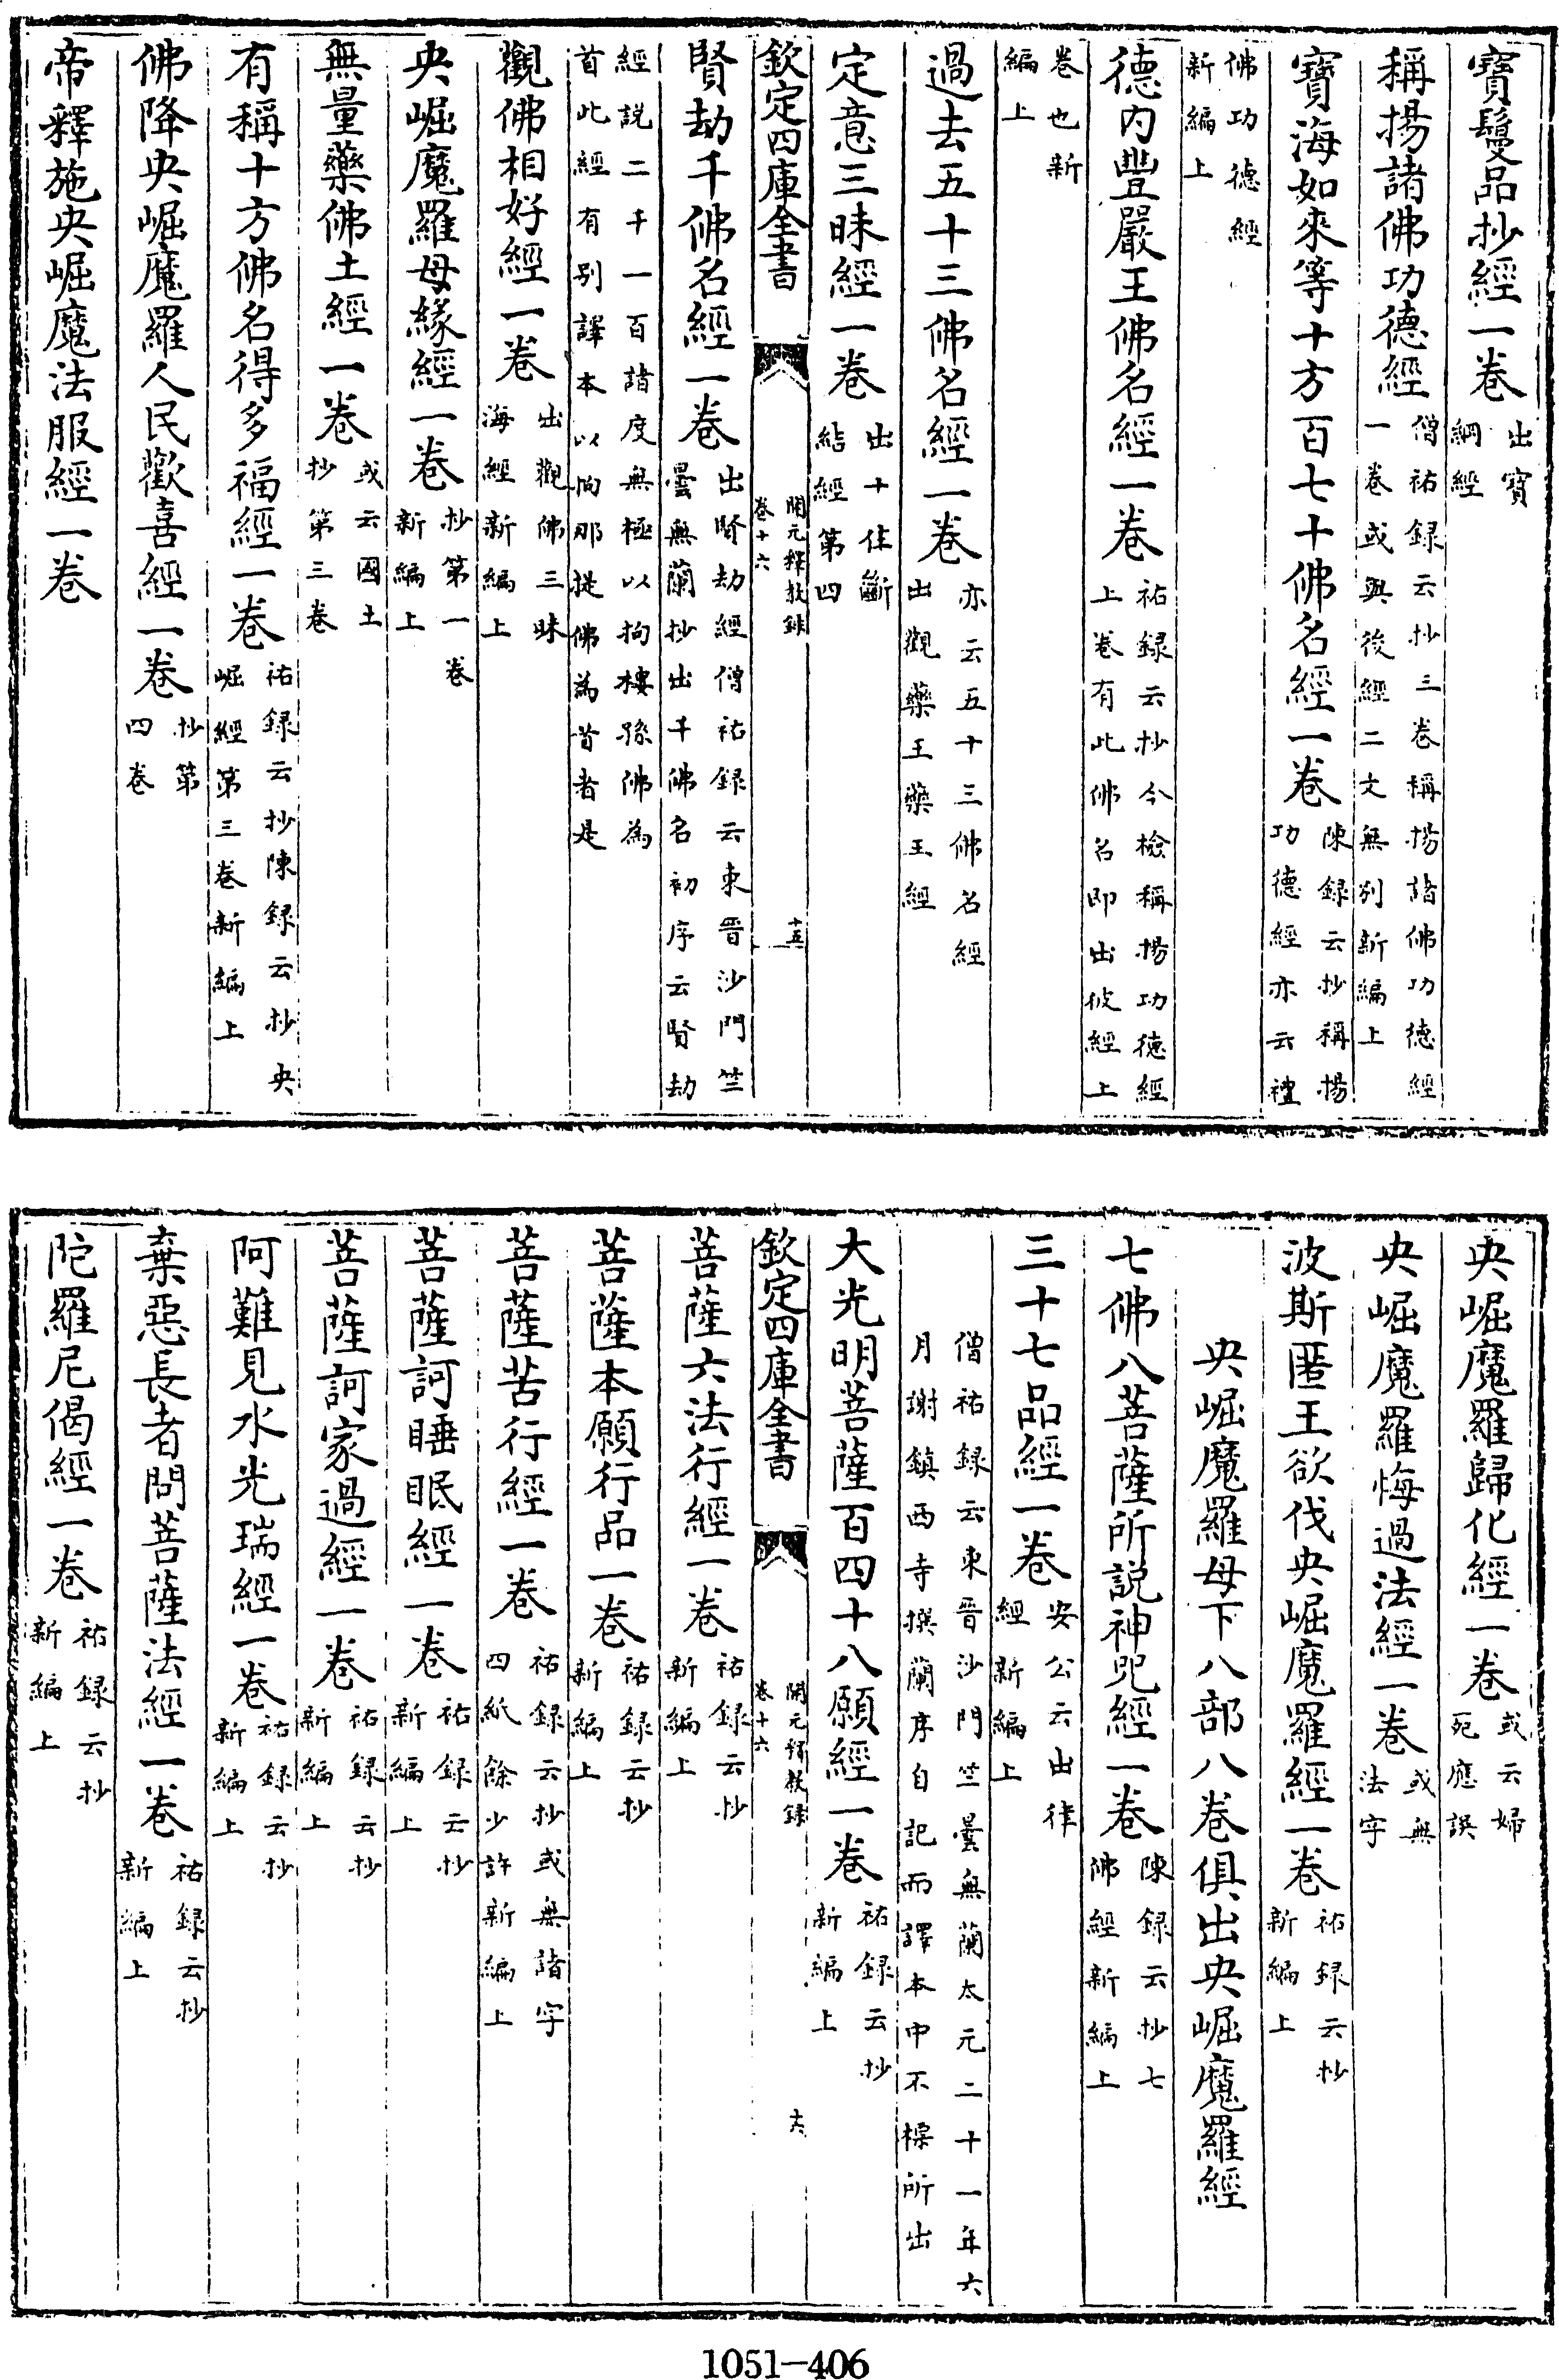 寶鬘品抄經一卷出寶綱經
稱揚諸佛功德經僧祐録云抄三卷稱揚諸佛功德經一卷或與後經二文無别新編上
寶海如來等十方百七十佛名經一卷陳録云抄稱揚功德經亦云禮
佛功德經新編上
德内豐嚴王佛名經一卷祐録云抄今檢稱揚功德經上卷有此佛名即出彼經上
卷也新編上
過去五十三佛名經一卷亦云五十三佛名經出觀藥王藥王經
定意三昧經一卷出十住斷結經第四
欽定四庫全書 開元釋教録卷十六 十五
賢劫千佛名經一卷出賢劫經僧祐録云東晋沙門竺曇無蘭抄出千佛名初序云賢劫
經説二千一百諸度無極以拘樓孫佛為首此經有别譯本以拘那提佛為首者是
觀佛相好經一卷出觀佛三昧海經新編上
央崛魔羅母緣經一卷抄第一卷新編上
無量藥佛土經一卷或云國土抄第三卷
有稱十方佛名得多福經一卷祐録云抄陳録云抄央崛經第三卷新編上
佛降央崛魔羅人民歡喜經一卷抄第四卷
帝釋施央崛魔法服經一卷
央崛魔羅歸化經一卷或云婦死應誤
央崛魔羅悔過法經一卷或無法字
波斯匿王欲伐央崛魔羅經一卷祐録云抄新編上
央崛魔羅母下八部八卷俱出央崛魔羅經
七佛八菩薩所説神呪經一卷陳録云抄七佛經新編上
三十七品經一卷安公云出律經新編上
僧祐録云東晋沙門竺曇無蘭太元二十一年六月謝鎮西寺撰蘭序自記而譯本中不標所出
大光明菩薩百四十八願經一卷祐録云抄新編上
欽定四庫全書 開元釋教録卷十六 十六
菩薩六法行經一卷祐録云抄新編上
菩薩本願行品一卷祐録云抄新編上
菩薩苦行經一卷祐録云抄或無諸字四紙餘少許新編上
菩薩訶睡眠經一卷祐録云抄新編上
菩薩訶家過經一卷祐録云抄新編上
阿難見水光瑞經一卷祐録云抄新編上
棄惡長者問菩薩法經一卷祐録云抄新編上
陀羅尼偈經一卷祐録云抄新編上
1051-406